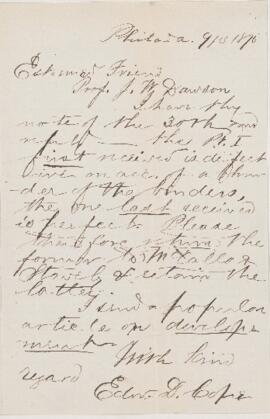 Philada. 9/13 1876
Esteemed Friend
Prof. J. W. Dawson
I have thy
note of the 30th and
reply — the Pt. I
first received is defect
ive on acc. of a blun-
der of the binders,
the one last received
is perfect. Please
therefore return the
former to McCalla &
Stavely & retain the
latter.
I send a popular
article on develop
ment
With kind
regard
Edw. D. Cope